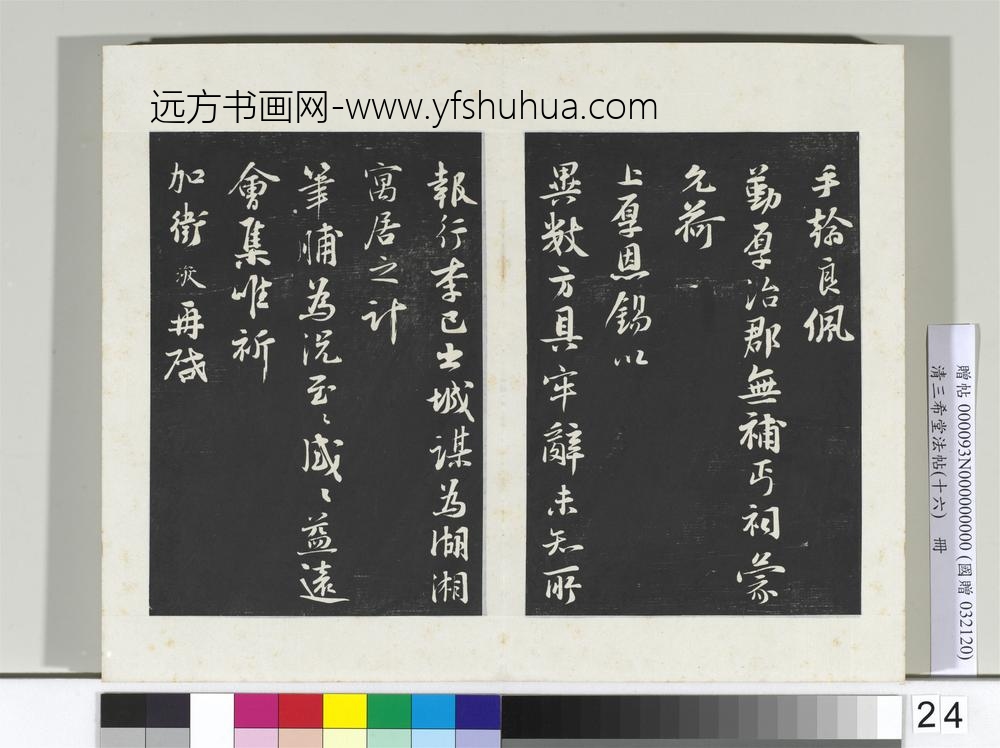 远方书画网-www.yfshuhua.com
手翰良佩
勤厚治郡無補丐祠蒙
允荷
上厚恩錫以
異數方具牢辭未知所
報行李已出城謀為湖湘
寓居之計
筆脯為況至〻感〻益遠
會集唯祈
加衛
再啟
贈帖 000093N000000000 (國贈 032120)
清三希堂法帖(十六) 冊
24